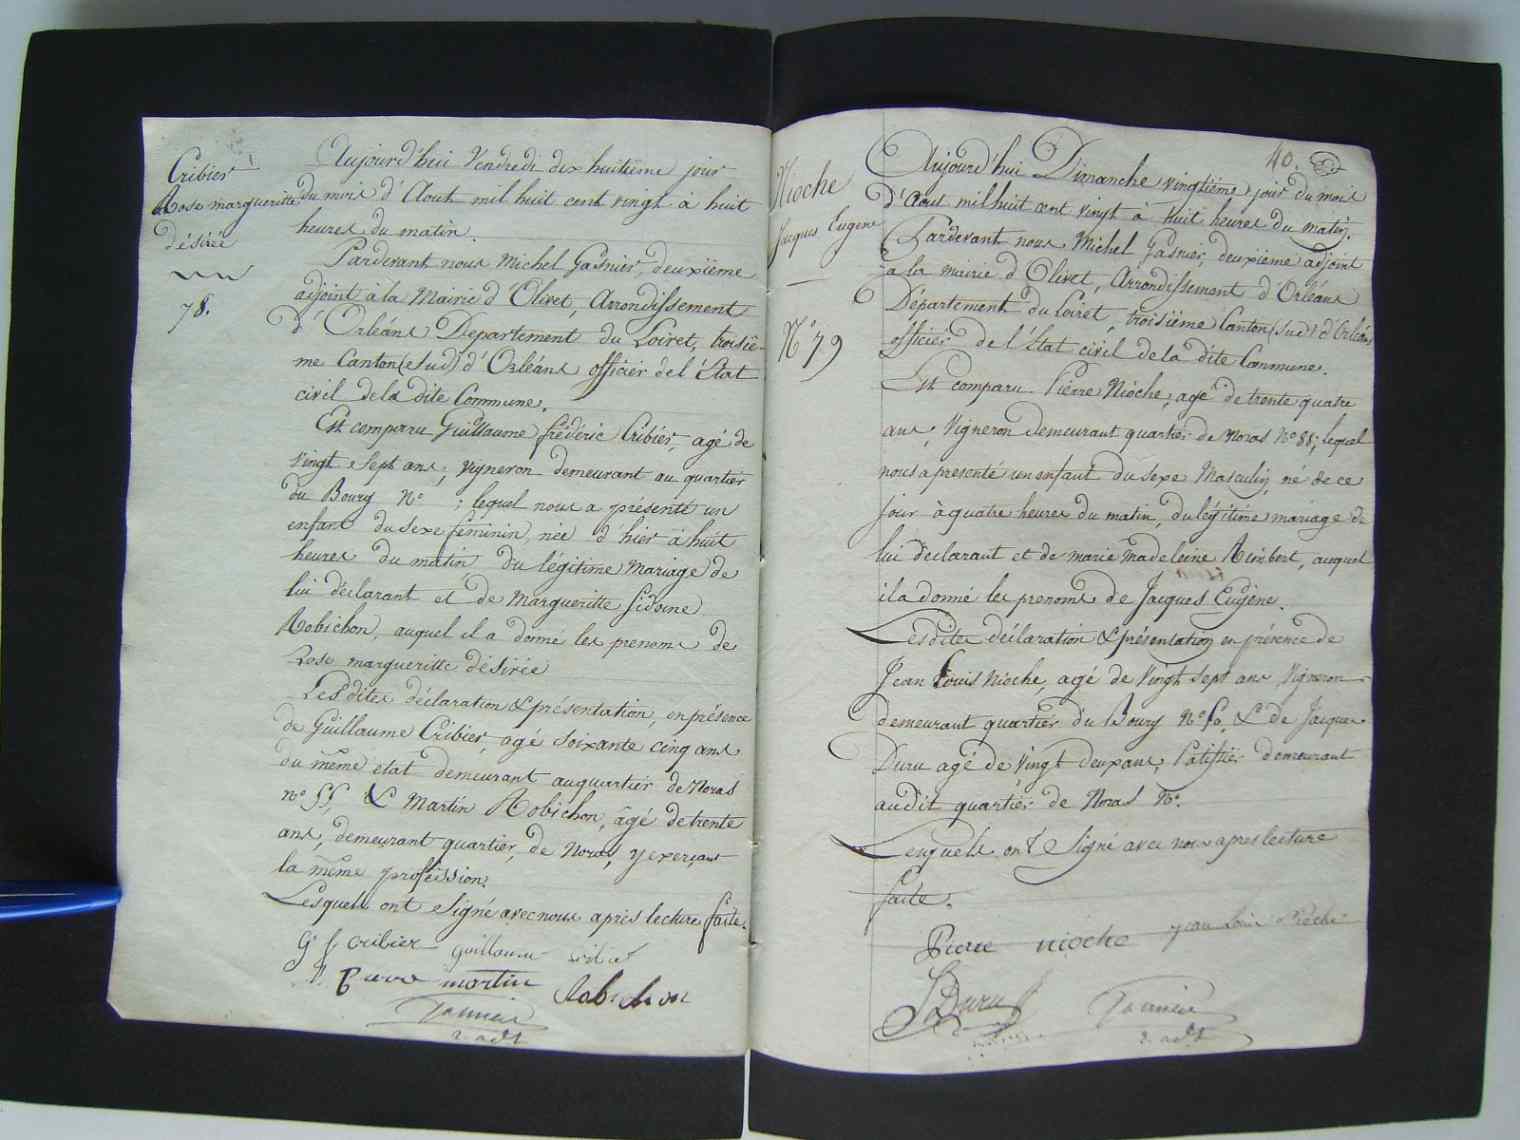 Cribier
Rose margueritte
désirée
78.
Aujourd'hui Vendredi dix huitieme jour
du mois d'Aout mil huit cent vingt à huit
heures du matin.
Pardevant nous Michel Gasnier, deuxiëme
adjoint à la Mairie d'Olivet, Arrondissement
d'Orléans Departement du Loiret, troisiè-
me Canton (Sud) d'Orléans officier de l'État
civil de la dite Commune.
Est comparu Guillaume frédéric Cribier, agé de
vingt Sept ans, vigneron demeurant au quartier
du Bourg N° ; lequel nous a présenté un
enfant du Sexe féminin, née d'hier à huit
heures du matin du légitime Mariage de
lui déclarant et de Margueritte Sidoine
Robichon, auquel il a donné les prenoms de
Rose margueritte désirée
Lesdites déclaration & présentation, en présence
de Guillaume Cribier, agé soixante cinq ans
du même etat demeurant au quartier de Noras
n° 55, & Martin Robichon, âgé de trente
ans, demeurant quartier de Noras, y exerçant
la même profession.
Lesquels ont Signé avec nous après lecture faite.
G f cribier guillaume
martin
Robichon
Gasnier
2. adt
40.
Nioche
Jacques Eugene
N° 79
Aujourd'hui Dimanche vingtiéme jour du mois
d'Aout mil huit cent vingt à huit heures du matin.
Pardevant nous Michel Gasnier, deuxième adjoint
à la mairie d'Olivet, Arrondissement d'Orléans
Département du Loiret, troisiëme Canton (Sud) d'Orléans
officier de l'État civil de la dite Commune.
Est comparu Pierre Nioche, agé de trente quatre
ans, Vigneron demeurant quartier de Noras N° 88; lequel
nous a presenté un enfant du sexe Masculin, né de ce
jour à quatre heures du matin, du légitime mariage de
lui déclarant et de marie madeleine Rimbert, auquel
il a donné les prenoms de Jacques Eugène.
Lesdites déclaration & présentation en présence de
Jean Louis Nioche, agé de Vingt Sept ans, Vigneron
demeurant quartier du Bourg N° 50, & de Jacques
Duru agé de vingt deux ans, Patissier demeurant
audit quartier de Noras N°.
Lesquels ont Signé avec nous apres lecture
faite.
Pierre nioche jean Louis Nioche
J Duru
Gasnier
2. adt